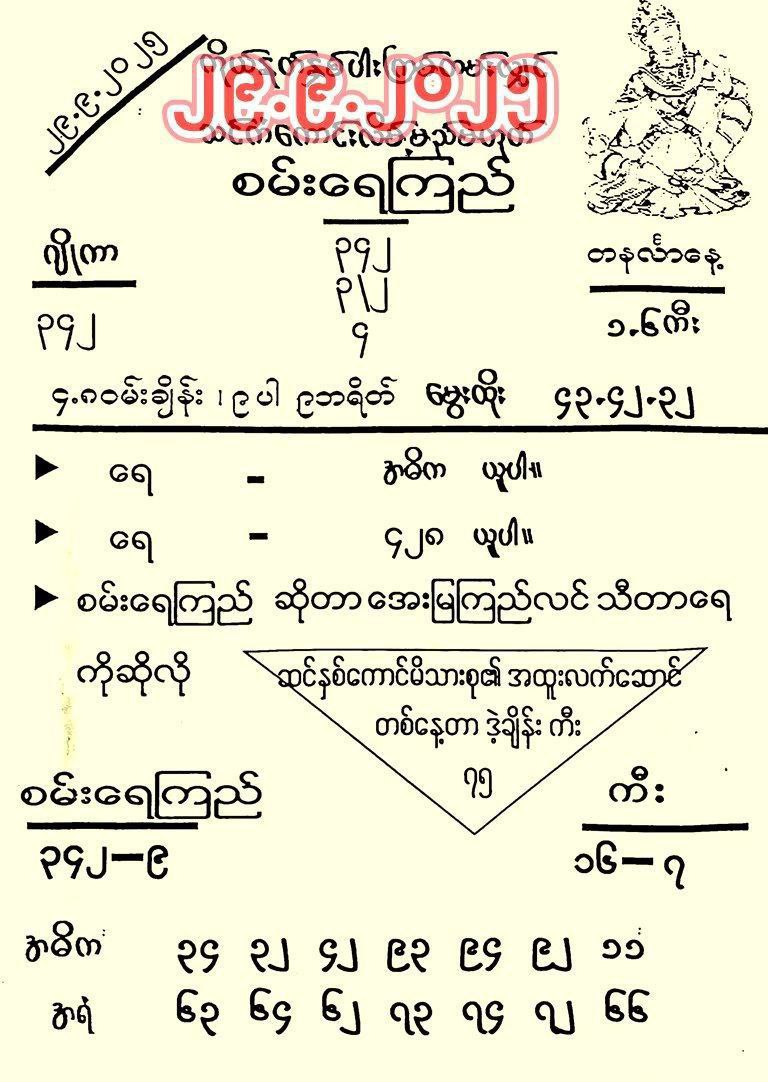 ၂၉.၉.၂၀၂၅
၂၉.၉.၂၀၂၅
စမ်းရေကြည်
ဂျိုကာ
၃၄၂
၃၄၂
၃\၂
၄
တနင်္လာနေ့
၁.၆ကီး
၄.၈ဝမ်းချိန်း ၊ ၉ပါ ၉ဘရိတ် မွေးထိုး ၄၃.၄၂.၃၂
ရေ - အဓိက ယူပါ။
ရေ - ၄၂၈ ယူပါ။
စမ်းရေကြည် ဆိုတာ အေးမြကြည်လင် သီတာရေ
ကိုဆိုလို
ဆင်နှစ်ကောင်မိသားစု၏ အထူးလက်ဆောင်
တစ်နေ့တာ ဒဲ့ချိန်း ကီး
၇၅
စမ်းရေကြည်
၃၄၂-၉
ကီး
၁၆-၇
အဓိက ၃၄ ၃၂ ၄၂ ၉၃ ၉၄ ၉၂ ၁၁
အရံ ၆၃ ၆၄ ၆၂ ၇၃ ၇၄ ၇၂ ၆၆